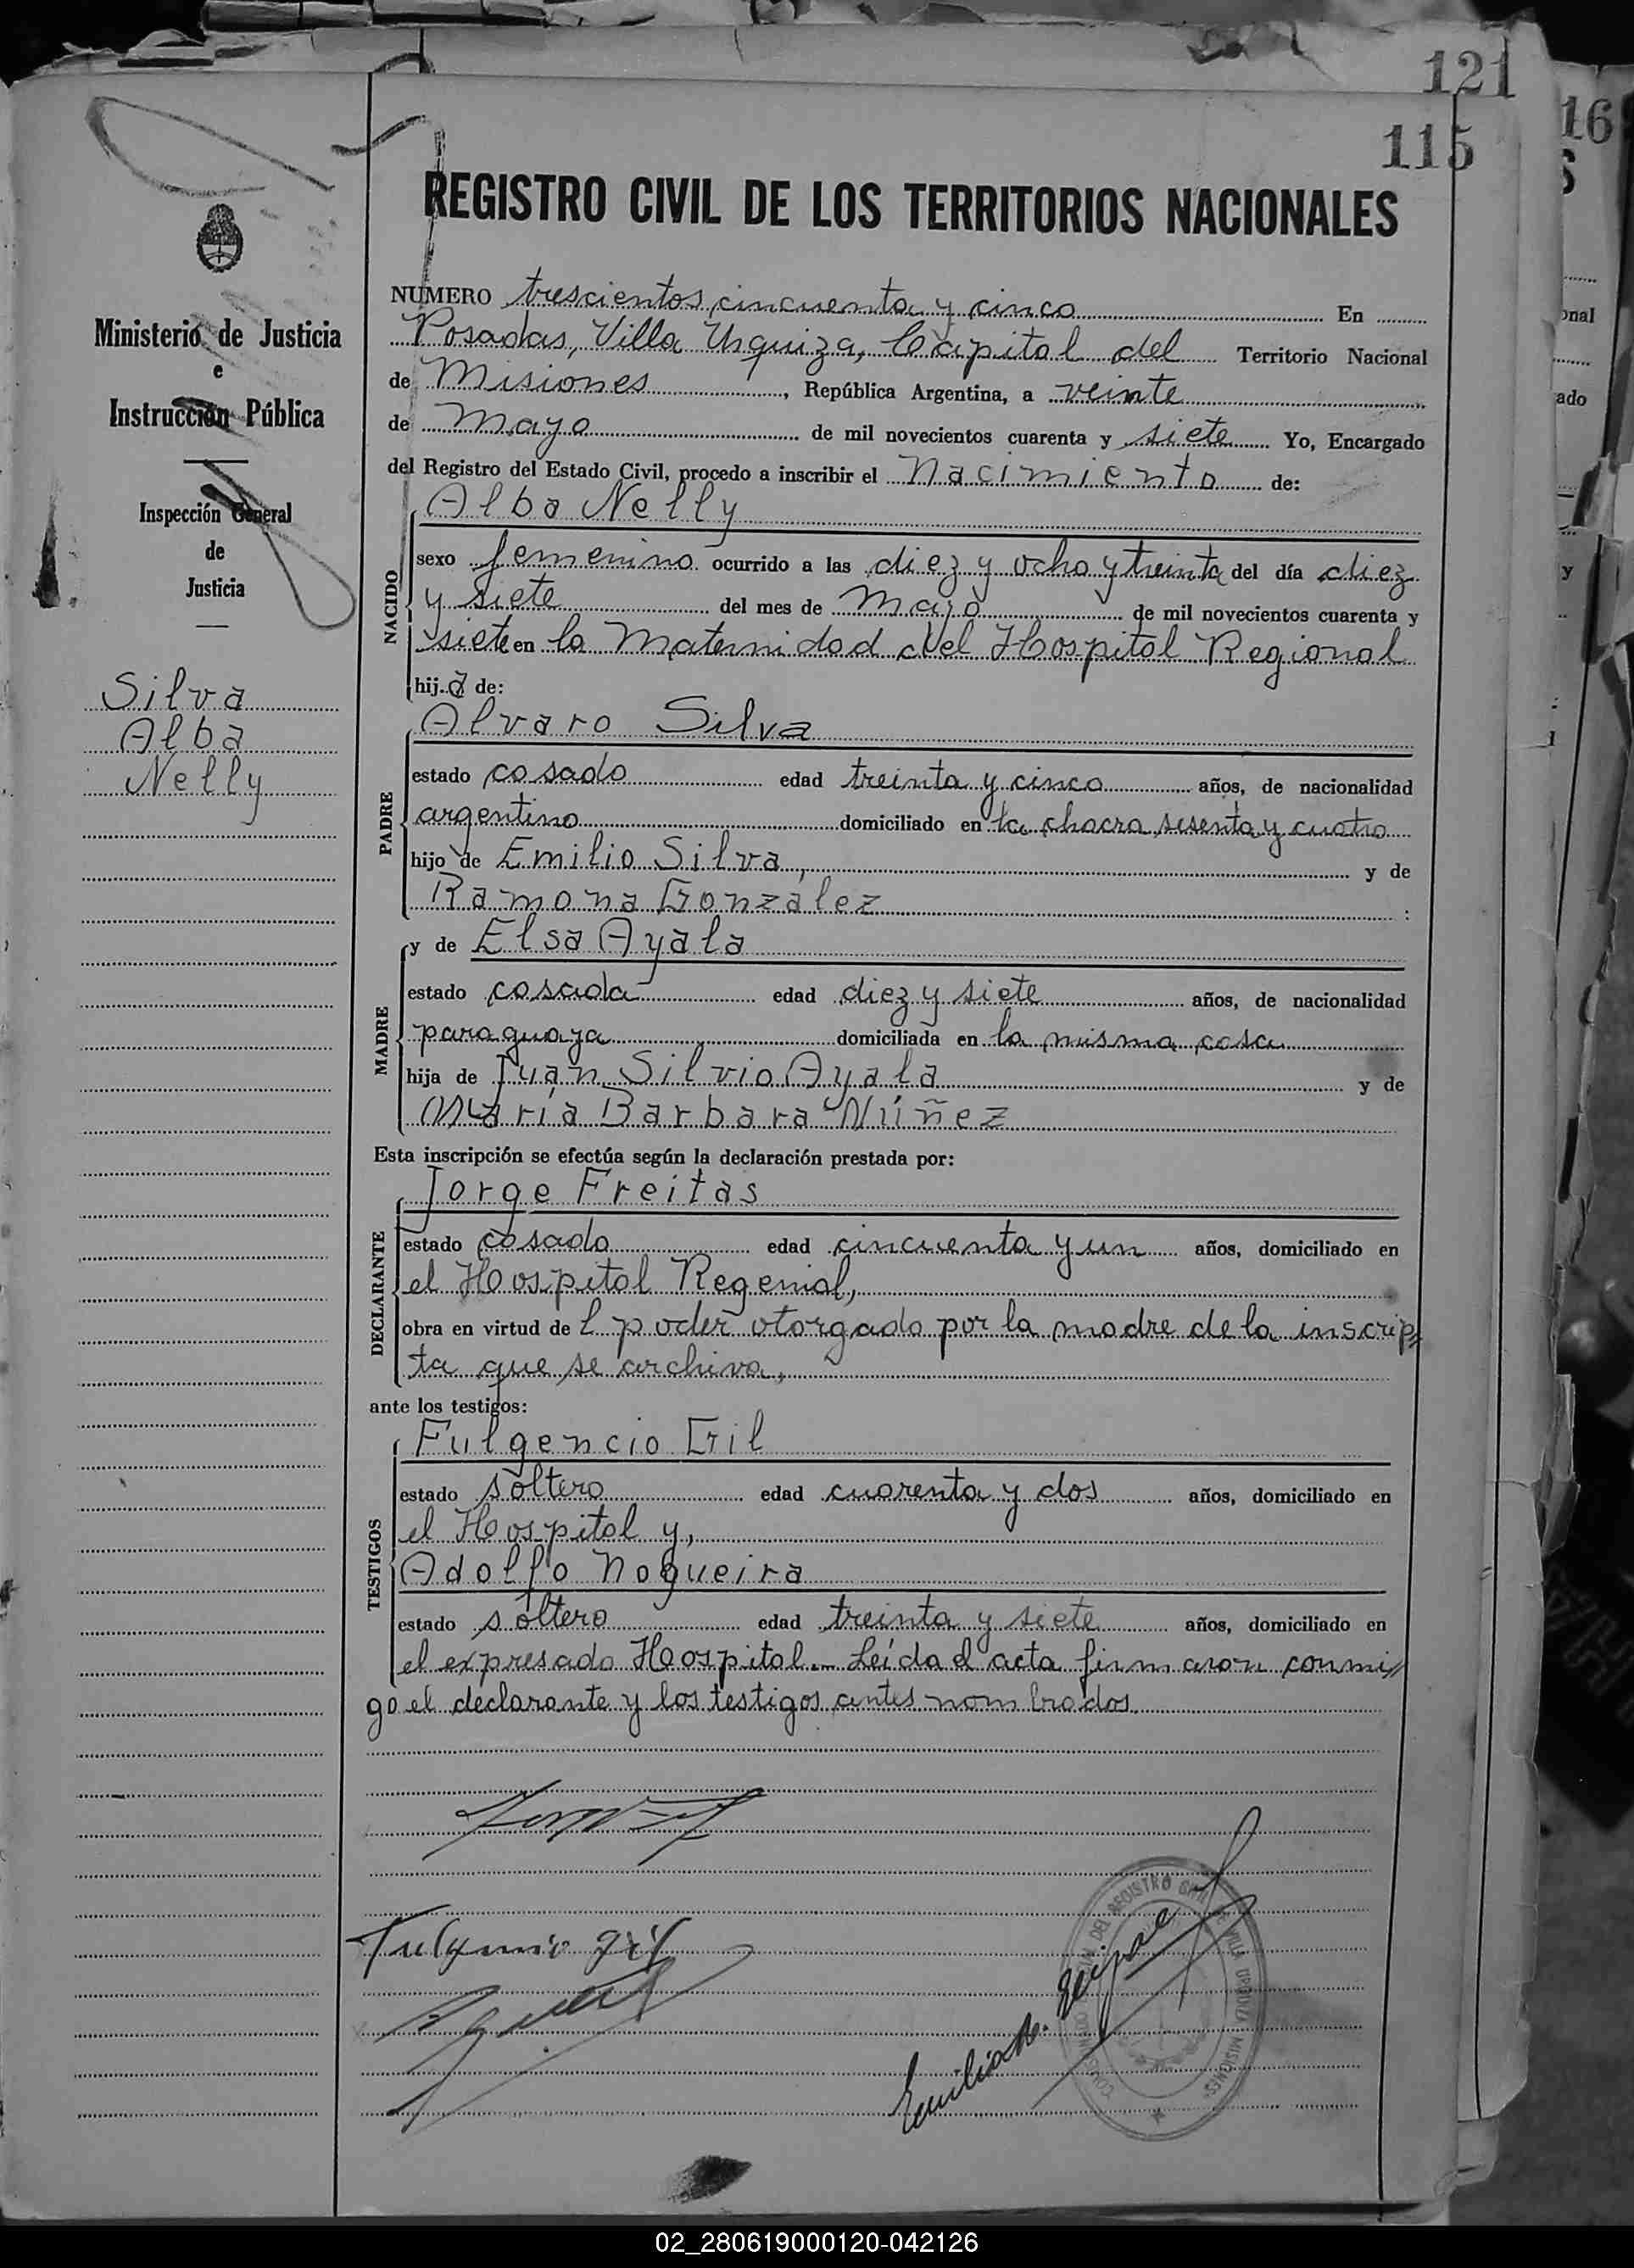 121
115
16
REGISTRO CIVIL DE LOS TERRITORIOS NACIONALES
Ministerio de Justicia
e
Instrucción Pública
Inspección General
de
Justicia
Silva
Alba
Nelly
NUMERO trescientos cincuenta y cinco En
Posadas, Villa Urquiza, Capital del Territorio Nacional
de Misiones, República Argentina, a veinte
de Mayo de mil novecientos cuarenta y siete Yo, Encargado
del Registro del Estado Civil, procedo a inscribir el Nacimiento de:
Alba Nelly
NACIDO
sexo femenino ocurrido a las diez y ocho y treinta del día diez
y siete del mes de Mayo de mil novecientos cuarenta y
siete en la Maternidad del Hospital Regional
hija de:
Alvaro Silva
PADRE
estado casado edad treinta y cinco años, de nacionalidad
argentino domiciliado en la chacra sesenta y cuatro
hijo de Emilio Silva, y de
Ramona González :
y de Elsa Ayala
MADRE
estado casada edad diez y siete años, de nacionalidad
paraguaya domiciliada en la misma casa
hija de Juan Silvio Ayala y de
María Barbara Núñez
Esta inscripción se efectúa según la declaración prestada por:
Jorge Freitas
DECLARANTE
estado casado edad cincuenta y un años, domiciliado en
el Hospital Regenial,
obra en virtud del poder otorgado por la madre de la inscrip
ta que se archiva,
ante los testigos:
Fulgencio Gil
TESTIGOS
estado soltero edad cuarenta y dos años, domiciliado en
el Hospital y,
Adolfo Nogueira
estado soltero edad treinta y siete años, domiciliado en
el expresado Hospital.- Leída el acta firmaron conmi//
go el declarante y los testigos antes nombrados.
Fulgencio Gil
DEL REGISTRO CIVIL DE VILLA URQUIZA MISIONES
02_280619000120-042126